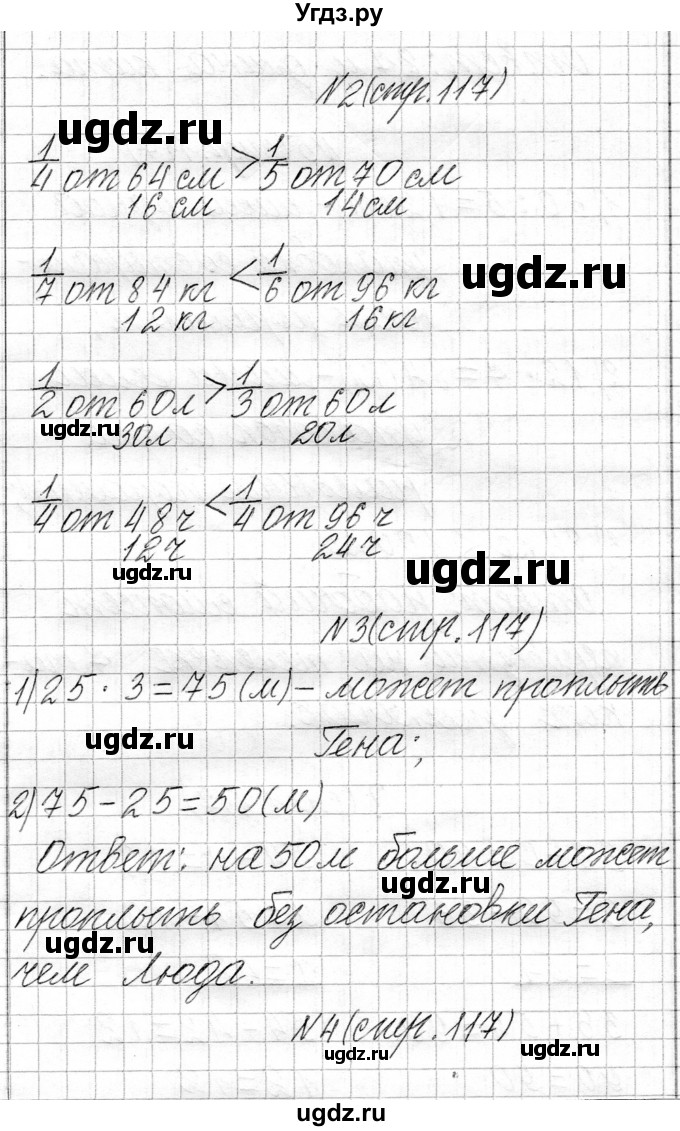 Угдз.ру
N2(стр.117)
ugdz.ru
1/4 от 64см > 1/5 от 70см
16 см 14см
1/7 от 84 кг < 1/6 от 96 кг
ugdz.ru
12 кг 16кг
1/2 от 60л > 1/3 от 60л
ugdz.ru
30л 20л
1/4 от 48ч < 1/4 от 96ч
12ч 24ч
ugdz.ru ugdz.ru
N3(стр.117)
1) 25 · 3 = 75(м) – может проплыть
ugdz.ru
Гена;
2) 75 – 25 = 50(м)
Ответ: на 50м больше может
ugdz.ru
проплыть без остановки Гена,
ugdz.ru
чем Люда.
N4(стр.117)
ugdz.ru ugdz.ru
ugdz.ru